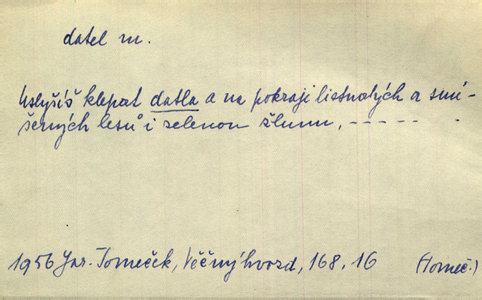 datel m.
Uslyšíš klepat datla a na pokraji listnatých a smí-
šených lesů i zelenou žlunu, -----.
1956 Jar. Tomeček, Věčný hvozd, 168, 16 (Tomeč.)